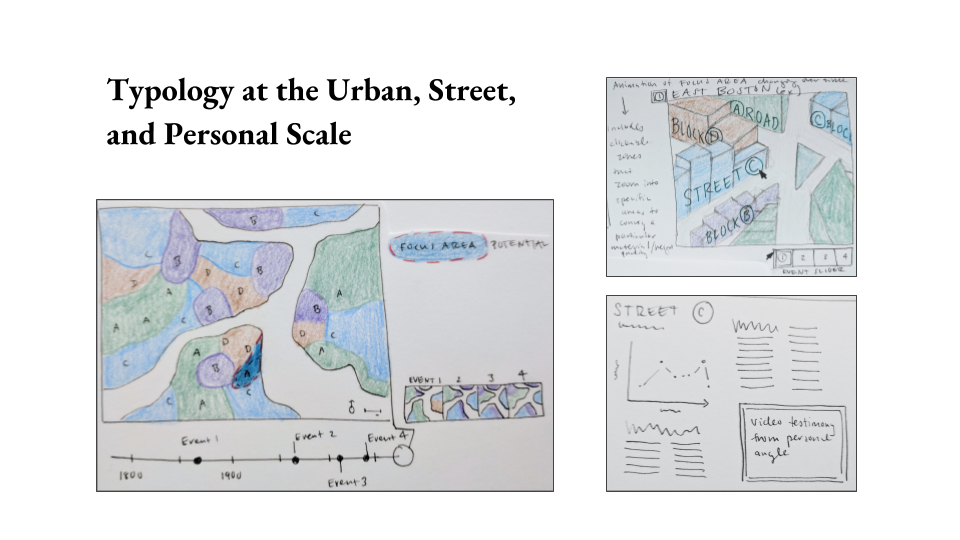 Typology at the Urban, Street,
and Personal Scale
B
C
C
B
D
C
B
D
D
A
A
B
A
A
C
B
C
D
C
A
A
D
D
B
A
C
C
A
FOCUS AREA POTENTIAL
EVENT 1 2 3 4
Event 1
Event 2
Event 4
Event 3
1800
1900
Animation of FOCUS AREA changing over time
1 EAST BOSTON (ex)
includes
clickable
zones
that
zoom into
specific
areas to
convey a
particular
material/
BLOCK D
A ROAD
C BLOC
STREET C
BLOCK B
1 2 3 4
EVENT SLIDER
STREET C
Video testimony
from personal
angle